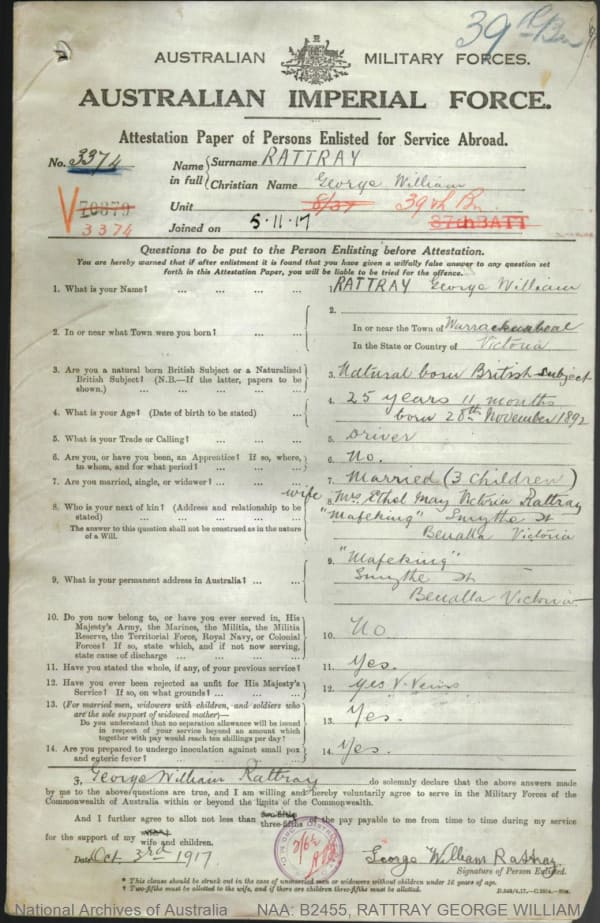 39th Bn
AUSTRALIAN MILITARY FORCES.
AUSTRALIAN IMPERIAL FORCE.
Attestation Paper of Persons Enlisted for Service Abroad.
No. 3374 Name in full { Surname RATTRAY
Christian Name George William
V 70379 Unit 8/37 39th Bn.
3374 Joined on 5.11.17 37th BATT
Questions to be put to the Person Enlisting before Attestation.
You are hereby warned that if after enlistment it is found that you have given a wilfully false answer to any question set
forth in this Attestation Paper, you will be liable to be tried for the offence.
1. What is your Name? ... ... ... ... 1. RATTRAY George William
2. In or near what Town were you born? ... ... 2. In or near the Town of Warracknabeal
In the State or Country of Victoria
3. Are you a natural born British Subject or a Naturalized
British Subject? (N.B.—If the latter, papers to be
shown.) ... ... ... ... 3. Natural born British Subject
4. What is your Age? (Date of birth to be stated) ... 4. 25 years 11 months
born 28th November 1892
5. What is your Trade or Calling? ... ... ... 5. Driver
6. Are you, or have you been, an Apprentice? If so, where,
to whom, and for what period? ... ... ... 6. No.
7. Are you married, single, or widower? ... ... ... 7. Married (3 children)
8. Who is your next of kin? (Address and relationship to be
stated) ... ... ... ... wife 8. Mrs. Ethel May Victoria Rattray
The answer to this question shall not be construed as in the nature
of a Will. "Mafeking" Smythe St
Benalla Victoria
9. What is your permanent address in Australia? ... ... 9. "Mafeking"
Smythe St
Benalla Victoria
10. Do you now belong to, or have you ever served in, His
Majesty's Army, the Marines, the Militia, the Militia
Reserve, the Territorial Force, Royal Navy, or Colonial
Forces? If so, state which, and if not now serving,
state cause of discharge ... ... ... 10. No
11. Have you stated the whole, if any, of your previous service? 11. Yes.
12. Have you ever been rejected as unfit for His Majesty's
Service? If so, on what grounds? ... ... ... 12. yes V. Veins
13. (For married men, widowers with children, and soldiers who
are the sole support of widowed mother)—
Do you understand that no separation allowance will be issued
in respect of your service beyond an amount which
together with pay would reach ten shillings per day? 13. Yes.
14. Are you prepared to undergo inoculation against small pox
and enteric fever? ... ... ... ... 14. Yes.
I, George William Rattray do solemnly declare that the above answers made
by me to the above questions are true, and I am willing and hereby voluntarily agree to serve in the Military Forces of the
Commonwealth of Australia within or beyond the limits of the Commonwealth.
And I further agree to allot not less than three-fifths of the pay payable to me from time to time during my service
for the support of my wife and children.
Date Oct 3rd 1917 George William Rattray
Signature of Person Enlisted.
* This clause should be struck out in the case of unmarried men or widowers without children under 18 years of age.
† Two-fifths must be allotted to the wife, and if there are children three-fifths must be allotted.
National Archives of Australia NAA: B2455, RATTRAY GEORGE WILLIAM